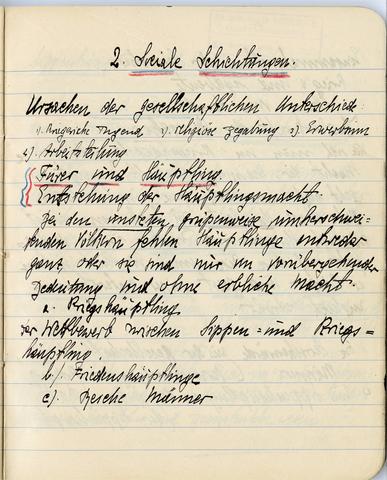 2. Soziale Schichtungen.
Ursachen der gesellschaftlichen Unterschiede:
1) Kriegerische Tugend 2) religiöse Begabung 3) Erwerbsinn
4) Arbeitsteilung
Fürer und Häuptling.
Entstehung der Häuptlingsmacht
Bei den unsteten, gruppenweise umherschwei-
fenden Völkern fehlen Häuptlinge entweder
ganz, oder sie sind nur von vorübergehender
Bedeutung und ohne erbliche Macht.
a. Kriegshäuptling
der Wettbewerb zwischen Sippen= und Kriegs-
häuptling.
b). Friedenshäuptlinge
c). Reiche Männer